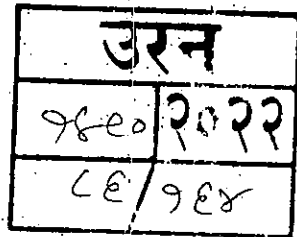 उरन
१४९० २०२२
८६/१६४